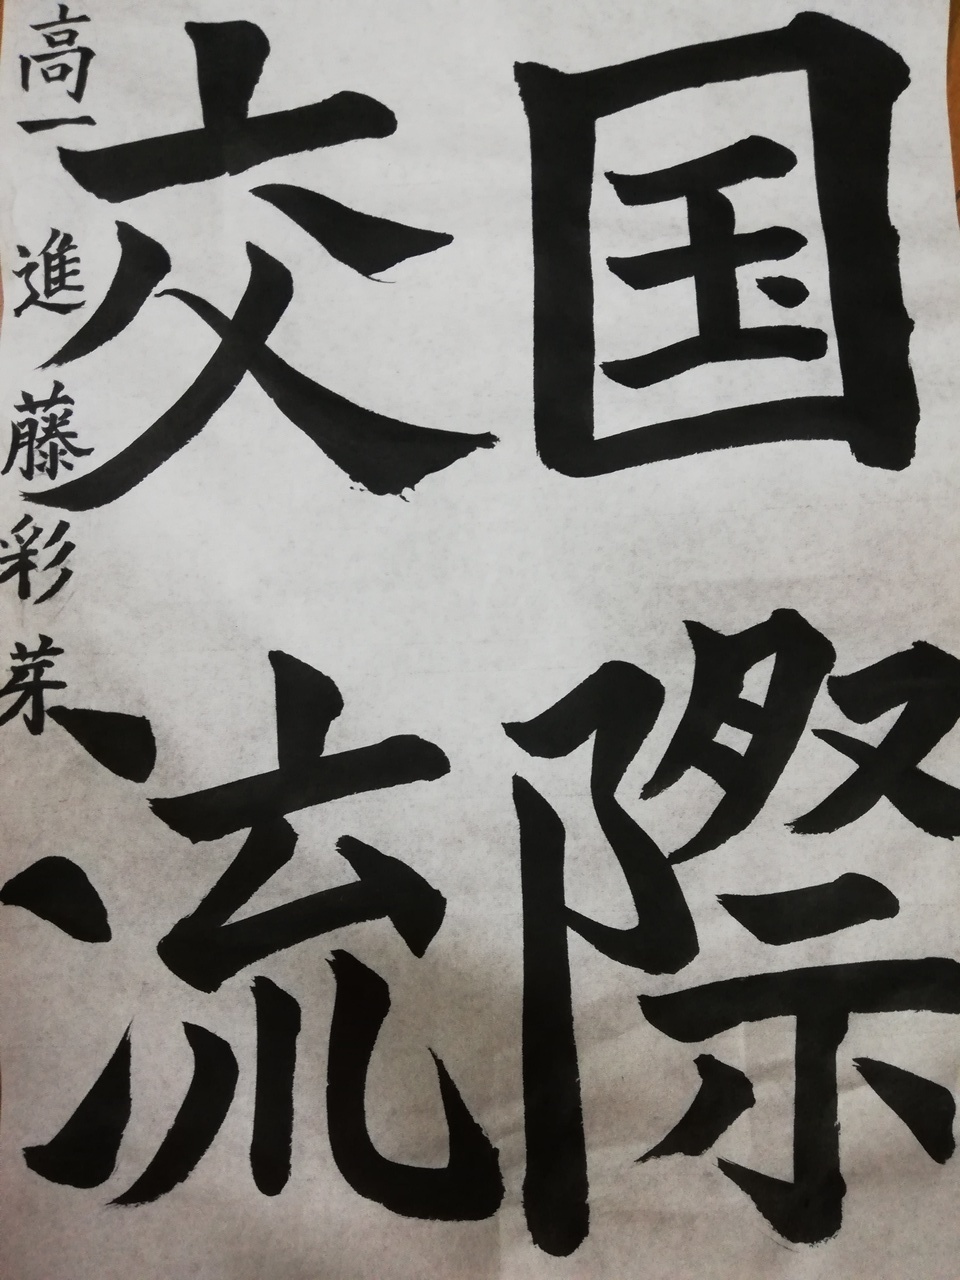 国際
交流
高一 進藤彩芽